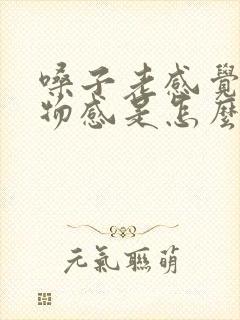 嗓子老感覺
物感是怎麼
元氣聯萌